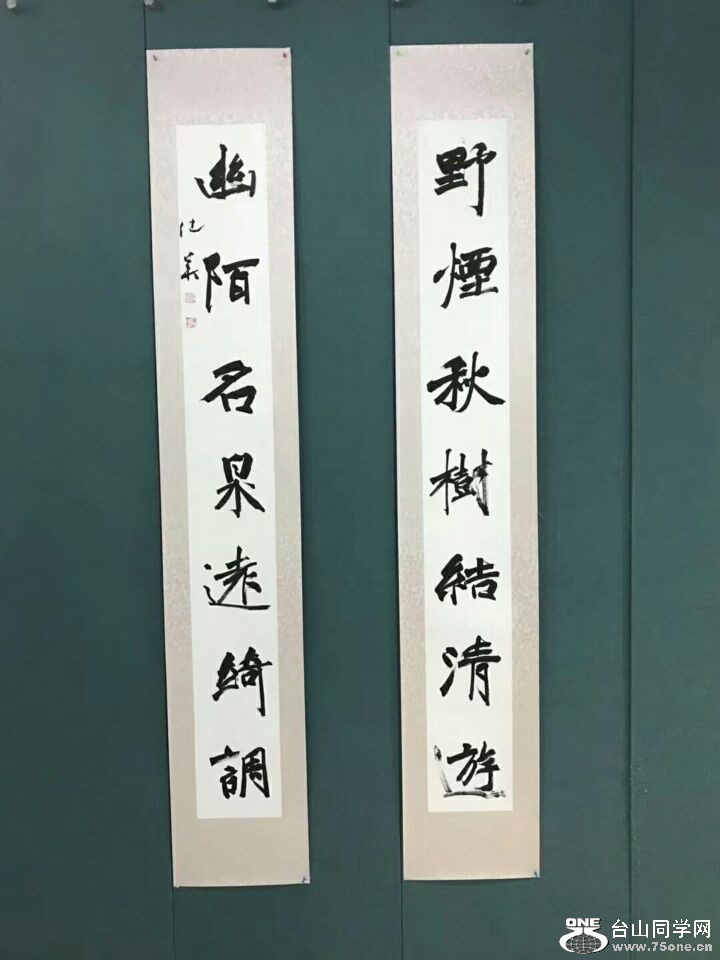 野煙秋樹結清遊
幽陌名果遠綺調
ONE
台山同学网
www.75one.cn